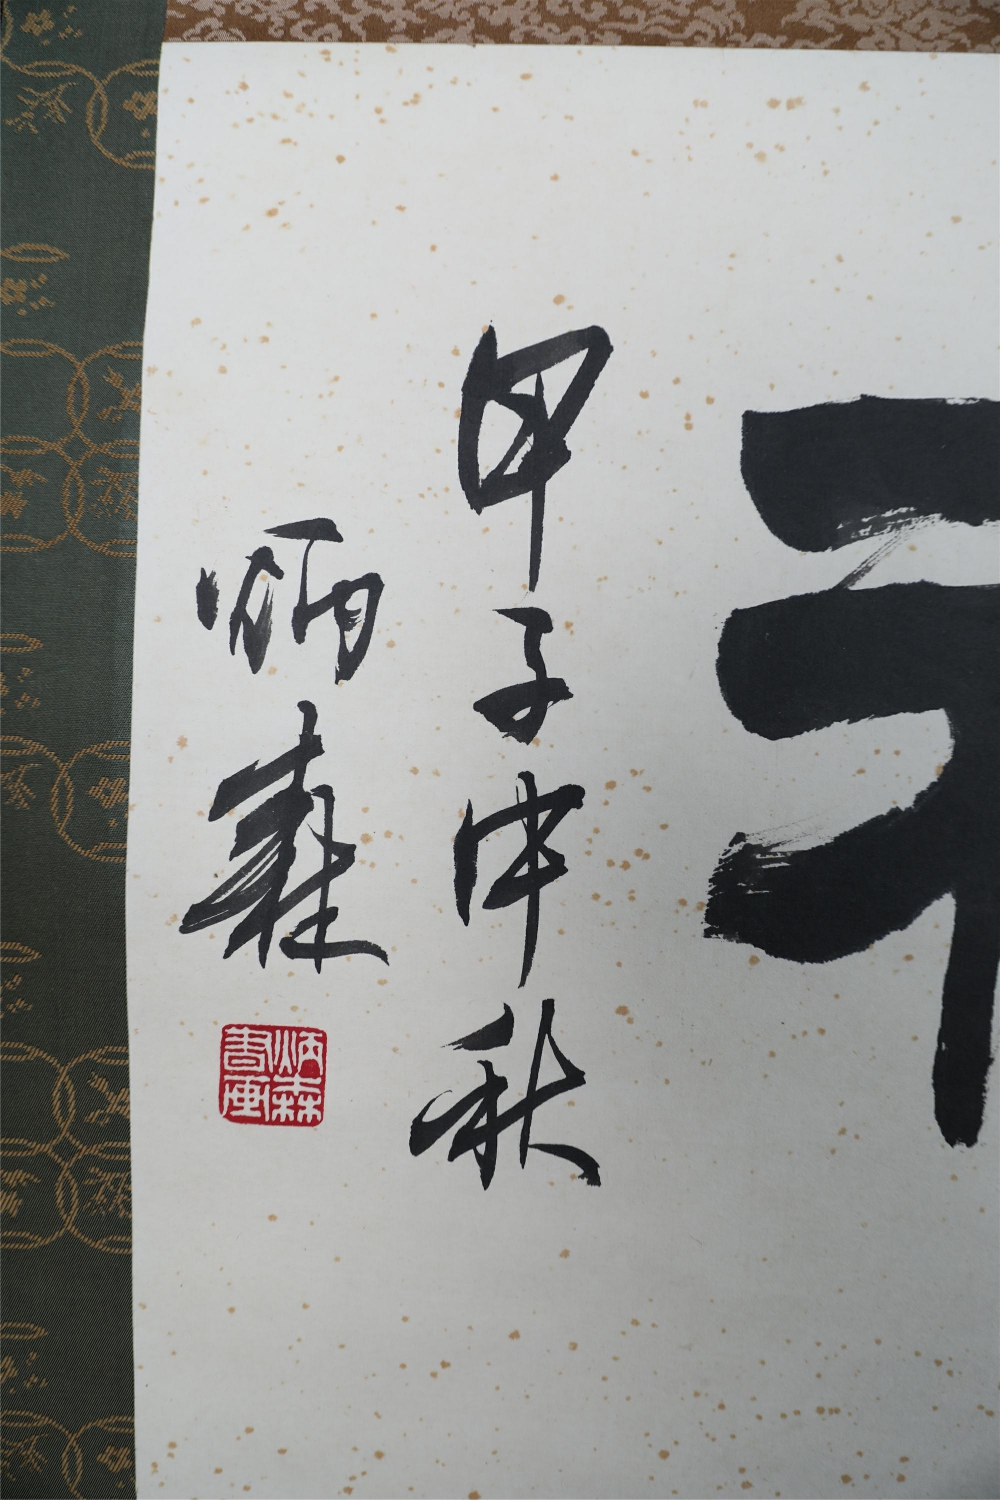 甲子中秋
炳森
炳森
書画